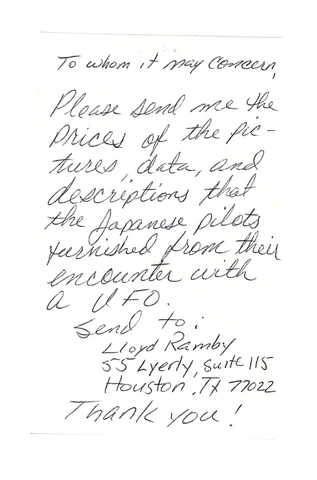 To whom it may concern,
Please send me the
prices of the pic-
tures, data, and
descriptions that
the Japanese pilots
furnished from their
encounter with
a UFO.
Send to:
Lloyd Ramby
55 Lyerly, Suite 115
Houston, Tx 77022
Thank you!